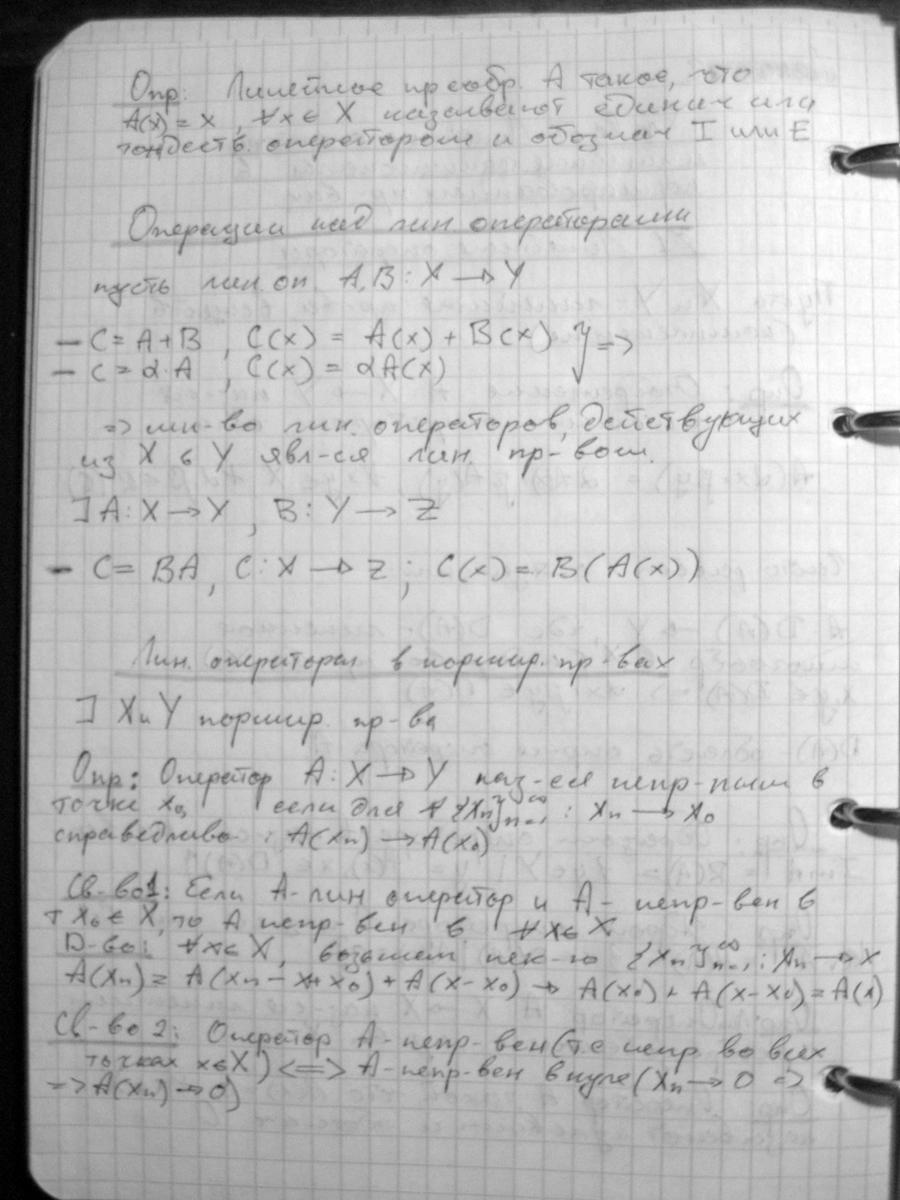 Опр: Линейное преобр. A такое, что
A(x) = x, ∀x ∈ X называют единич или
тождеств. оператором и обознач I или E
Операции над лин операторами
пусть лин. оп. A, B : X → Y
— C = A + B , C(x) = A(x) + B(x) } =>
— C = α·A , C(x) = αA(x)
=> мн-во лин. операторов, действующих
из X в Y явл-ся лин. пр-вом.
∃ A: X → Y , B: Y → Z
— C = BA, C: X → Z ; C(x) = B(A(x))
Лин. операторы в нормир. пр-вах
∃ X и Y нормир. пр-ва
Опр: Оператор A: X → Y наз-ся непр-ным в
точке x₀, если для ∀ {xₙ}ₙ₌₁^∞ : xₙ → x₀
справедливо : A(xₙ) → A(x₀)
Св-во1: Если A - лин оператор и A - непр-вен в
т x₀ ∈ X, то A непр-вен в ∀x ∈ X
D-во: ∀x ∈ X, возьмем пек-ю {xₙ}ₙ₌₁^∞ : xₙ → x
A(xₙ) = A(xₙ - x + x₀) + A(x - x₀) → A(x₀) + A(x - x₀) = A(x)
Св-во 2: Оператор A - непр-вен (т.е непр во всех
точках x ∈ X) <=> A - непр-вен в нуле (xₙ → 0 =>
=> A(xₙ) → 0)